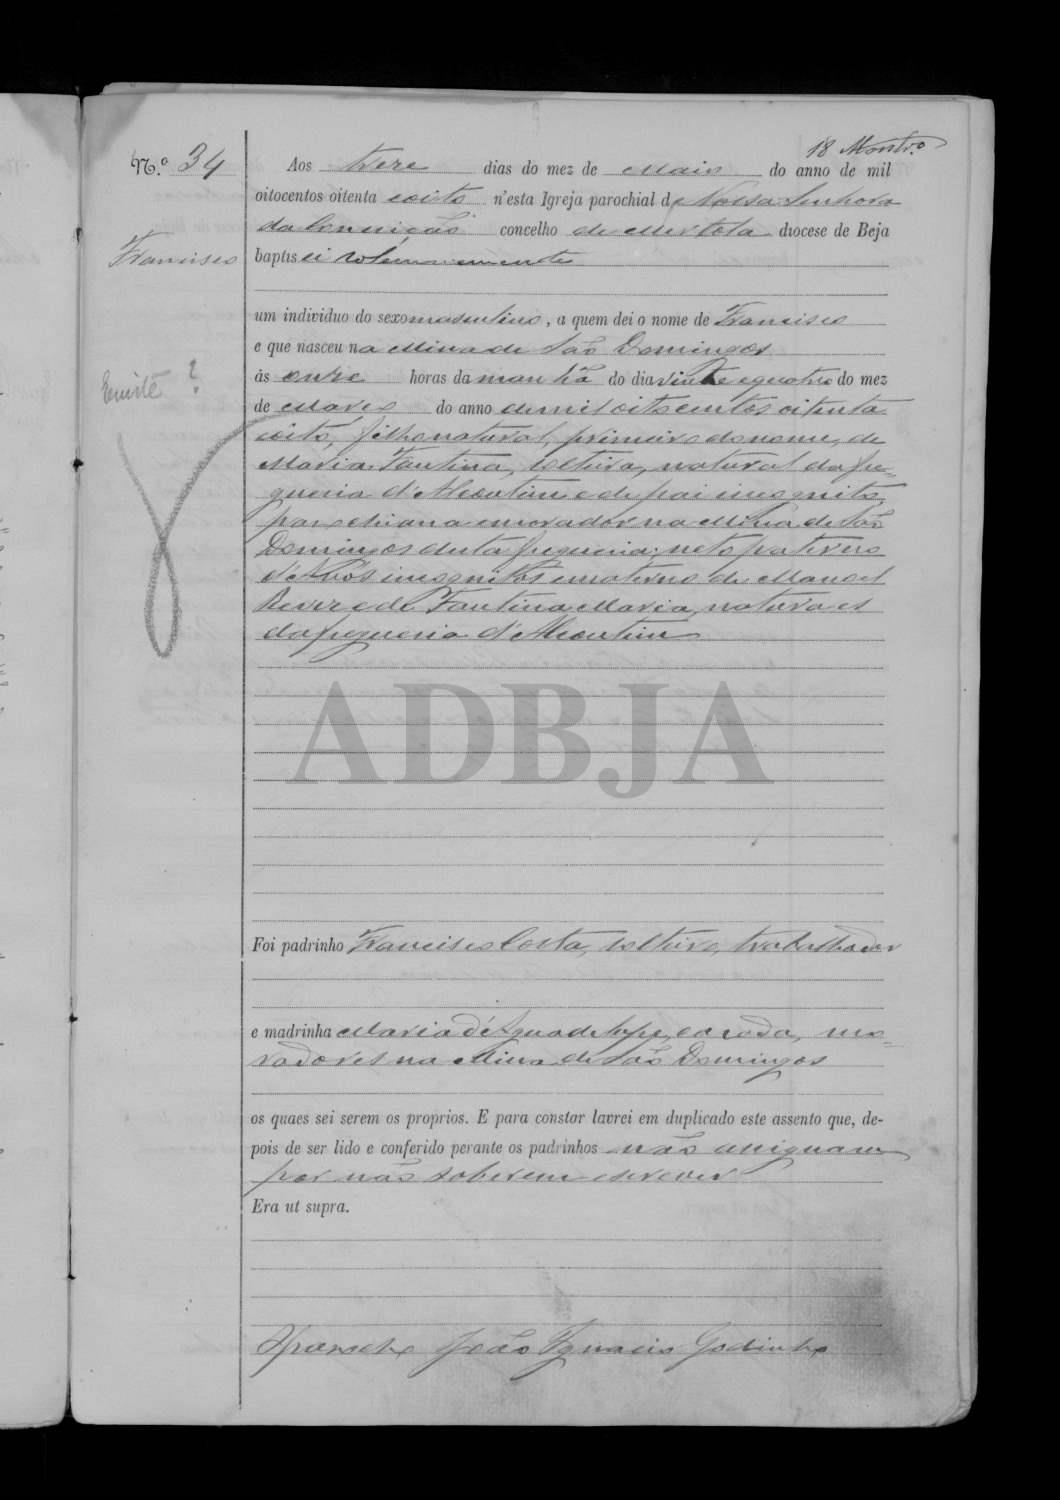 18 Montr.º
N.º 34
Aos treze dias do mez de Maio do anno de mil
oitocentos oitenta e oito n'esta Igreja parochial de Nossa Senhora
da Conceição concelho de Mertola diocese de Beja
Francisco
baptisei solemnemente
um individuo do sexo masculino, a quem dei o nome de Francisco
e que nasceu na Mina de São Domingos
ás onze horas da manhã do dia vinte e quatro do mez
?
de Março do anno de mil oitocentos oitenta
e oito, filho natural, primeiro do nome, de
Maria Faustina, solteira, natural da fre-
guesia d'Alcoutim e de pai incognito,
parochiana e moradora na Mina de São
Domingos desta freguesia; neto paterno
d'Avós incognitos e materno de Manoel
e de Faustina Maria, naturaes
da freguesia d'Alcoutim
ADBJA
Foi padrinho Francisco Costa, solteiro, trabalhador
e madrinha Maria d'Aguadelupe, casada, mo-
radores na Mina de São Domingos
os quaes sei serem os proprios. E para constar lavrei em duplicado este assento que, de-
pois de ser lido e conferido perante os padrinhos não assignam
por não saberem escrever
Era ut supra.
João Ignacio Godinho